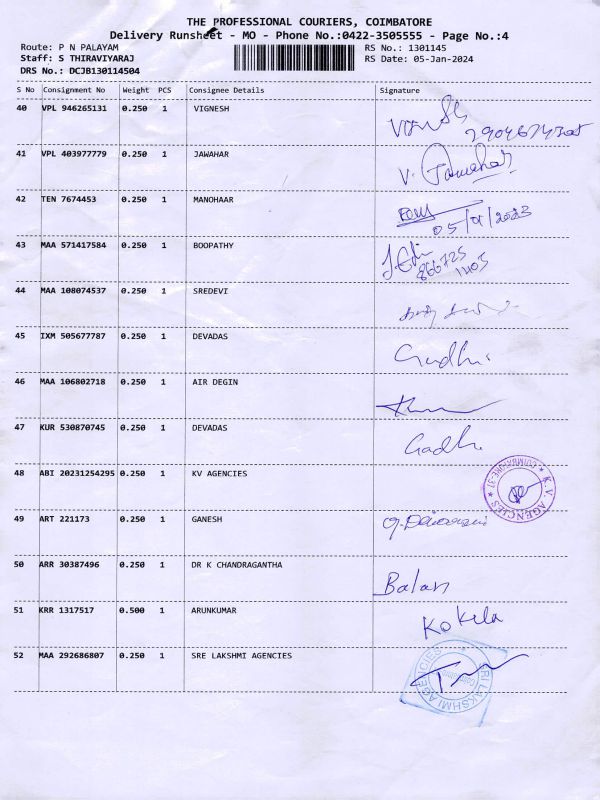 THE PROFESSIONAL COURIERS, COIMBATORE
Delivery Runsheet - MO - Phone No.:0422-3505555 - Page No.:4
Route: P N PALAYAM RS No.: 1301145
Staff: S THIRAVIYARAJ RS Date: 05-Jan-2024
DRS No.: DCJB130114504
S No Consignment No Weight PCS Consignee Details Signature
40 VPL 946265131 0.250 1 VIGNESH
41 VPL 403977779 0.250 1 JAWAHAR V. Jawahar
42 TEN 7674453 0.250 1 MANOHAAR
43 MAA 571417584 0.250 1 BOOPATHY
866725
1403
44 MAA 108074537 0.250 1 SREDEVI
45 IXM 505677787 0.250 1 DEVADAS
46 MAA 106802718 0.250 1 AIR DEGIN
47 KUR 530870745 0.250 1 DEVADAS
48 ABI 20231254295 0.250 1 KV AGENCIES
K.V. AGENCIES ★ COIMBATORE-37 ★
49 ART 221173 0.250 1 GANESH
50 ARR 30387496 0.250 1 DR K CHANDRAGANTHA Balan
51 KRR 1317517 0.500 1 ARUNKUMAR Kokila
52 MAA 292686807 0.250 1 SRE LAKSHMI AGENCIES
SRI LAKSHMI AGENCIES